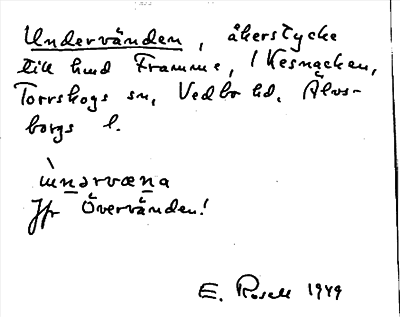 Undervänden, åkerstycke
till hmd Framme, i Kesnacken,
Torrskogs sn, Vedbo hd, Älvs-
borgs l.
ùnərvæna
Jfr Övervänden!
E. Rosell 1949